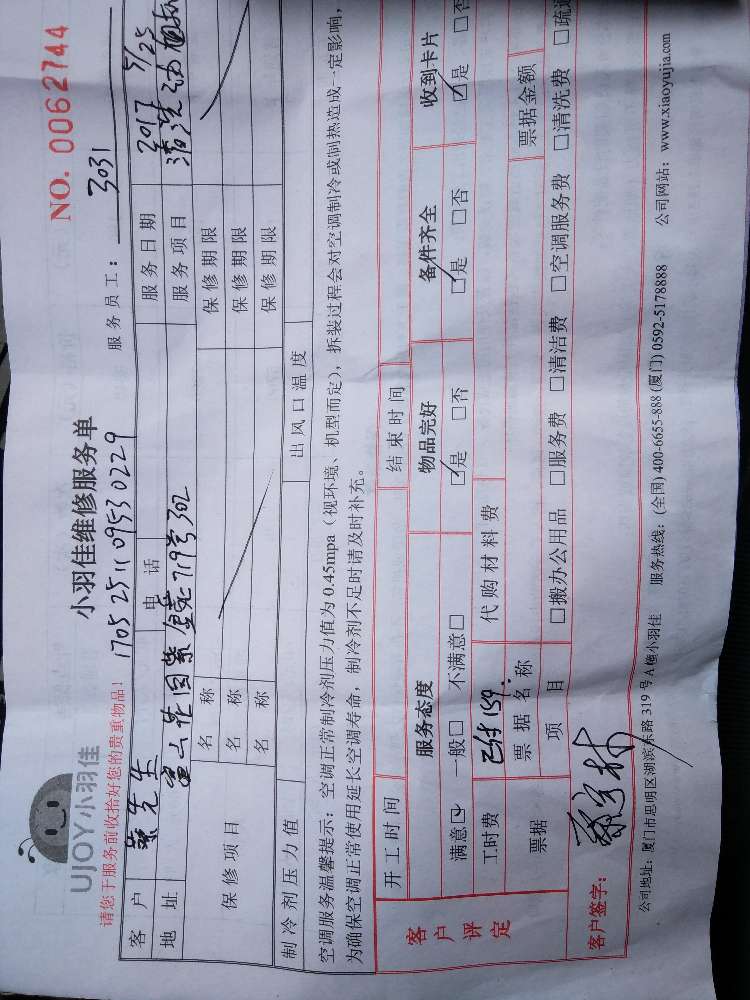 NO. 0062744
UJOY小羽佳
小羽佳维修服务单
请您于服务前收拾好您的贵重物品!
1705251109530229
服务员工: 3031
客户 先生 电话 服务日期 2017 5/25
地址 719号302 服务项目 清洗油烟机
保修项目 名称 保修期限
名称 保修期限
名称 保修期限
制冷剂压力值 出风口温度
空调服务温馨提示:空调正常制冷剂压力值为0.45mpa(视环境、机型而定),拆装过程会对空调制冷或制热造成一定影响,
为确保空调正常使用延长空调寿命,制冷剂不足时请及时补充。
开工时间 结束时间
客户评定
服务态度 物品完好 备件齐全 收到卡片
满意☑ 一般□ 不满意□ ☑是 □否 ☑是 □否 ☑是 □否
工时费 已付159. 代购材料费
票据 票据名称 票据金额
项目 □搬办公用品 □服务费 □清洁费 □空调服务费 □清洗费 □疏通
客户签字:
公司地址:厦门市思明区湖滨东路319号A幢小羽佳 服务热线:(全国)400-6655-888(厦门)0592-5178888 公司网站:www.xiaoyujia.com